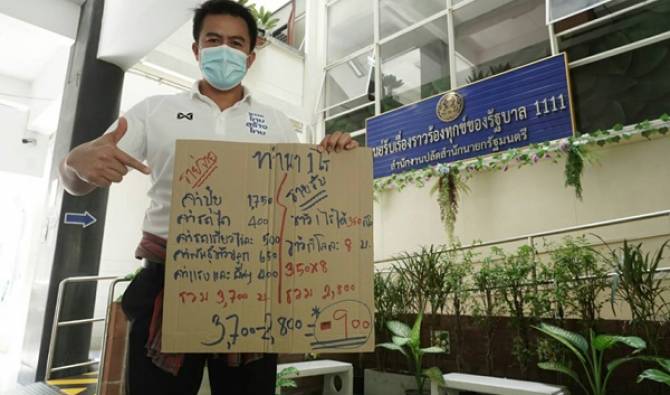 ศูนย์รับเรื่องราวร้องทุกข์ของรัฐบาล 1111
สำนักงานปลัดสำนักนายกรัฐมนตรี
ไทย
สร้าง
ไทย
ทำนา 1 ไร่
รายจ่าย
ค่าปุ๋ย 1,750
ค่ารถไถ 400
ค่ารถเกี่ยว 500
650
ค่าแรง 400
รวม 3,700 บ.
รายรับ
ข้าว 1 ไร่ได้ 350
ข้าวกิโลละ 8 บ.
350x8
รวม 2,800
3,700-2,800 = -900